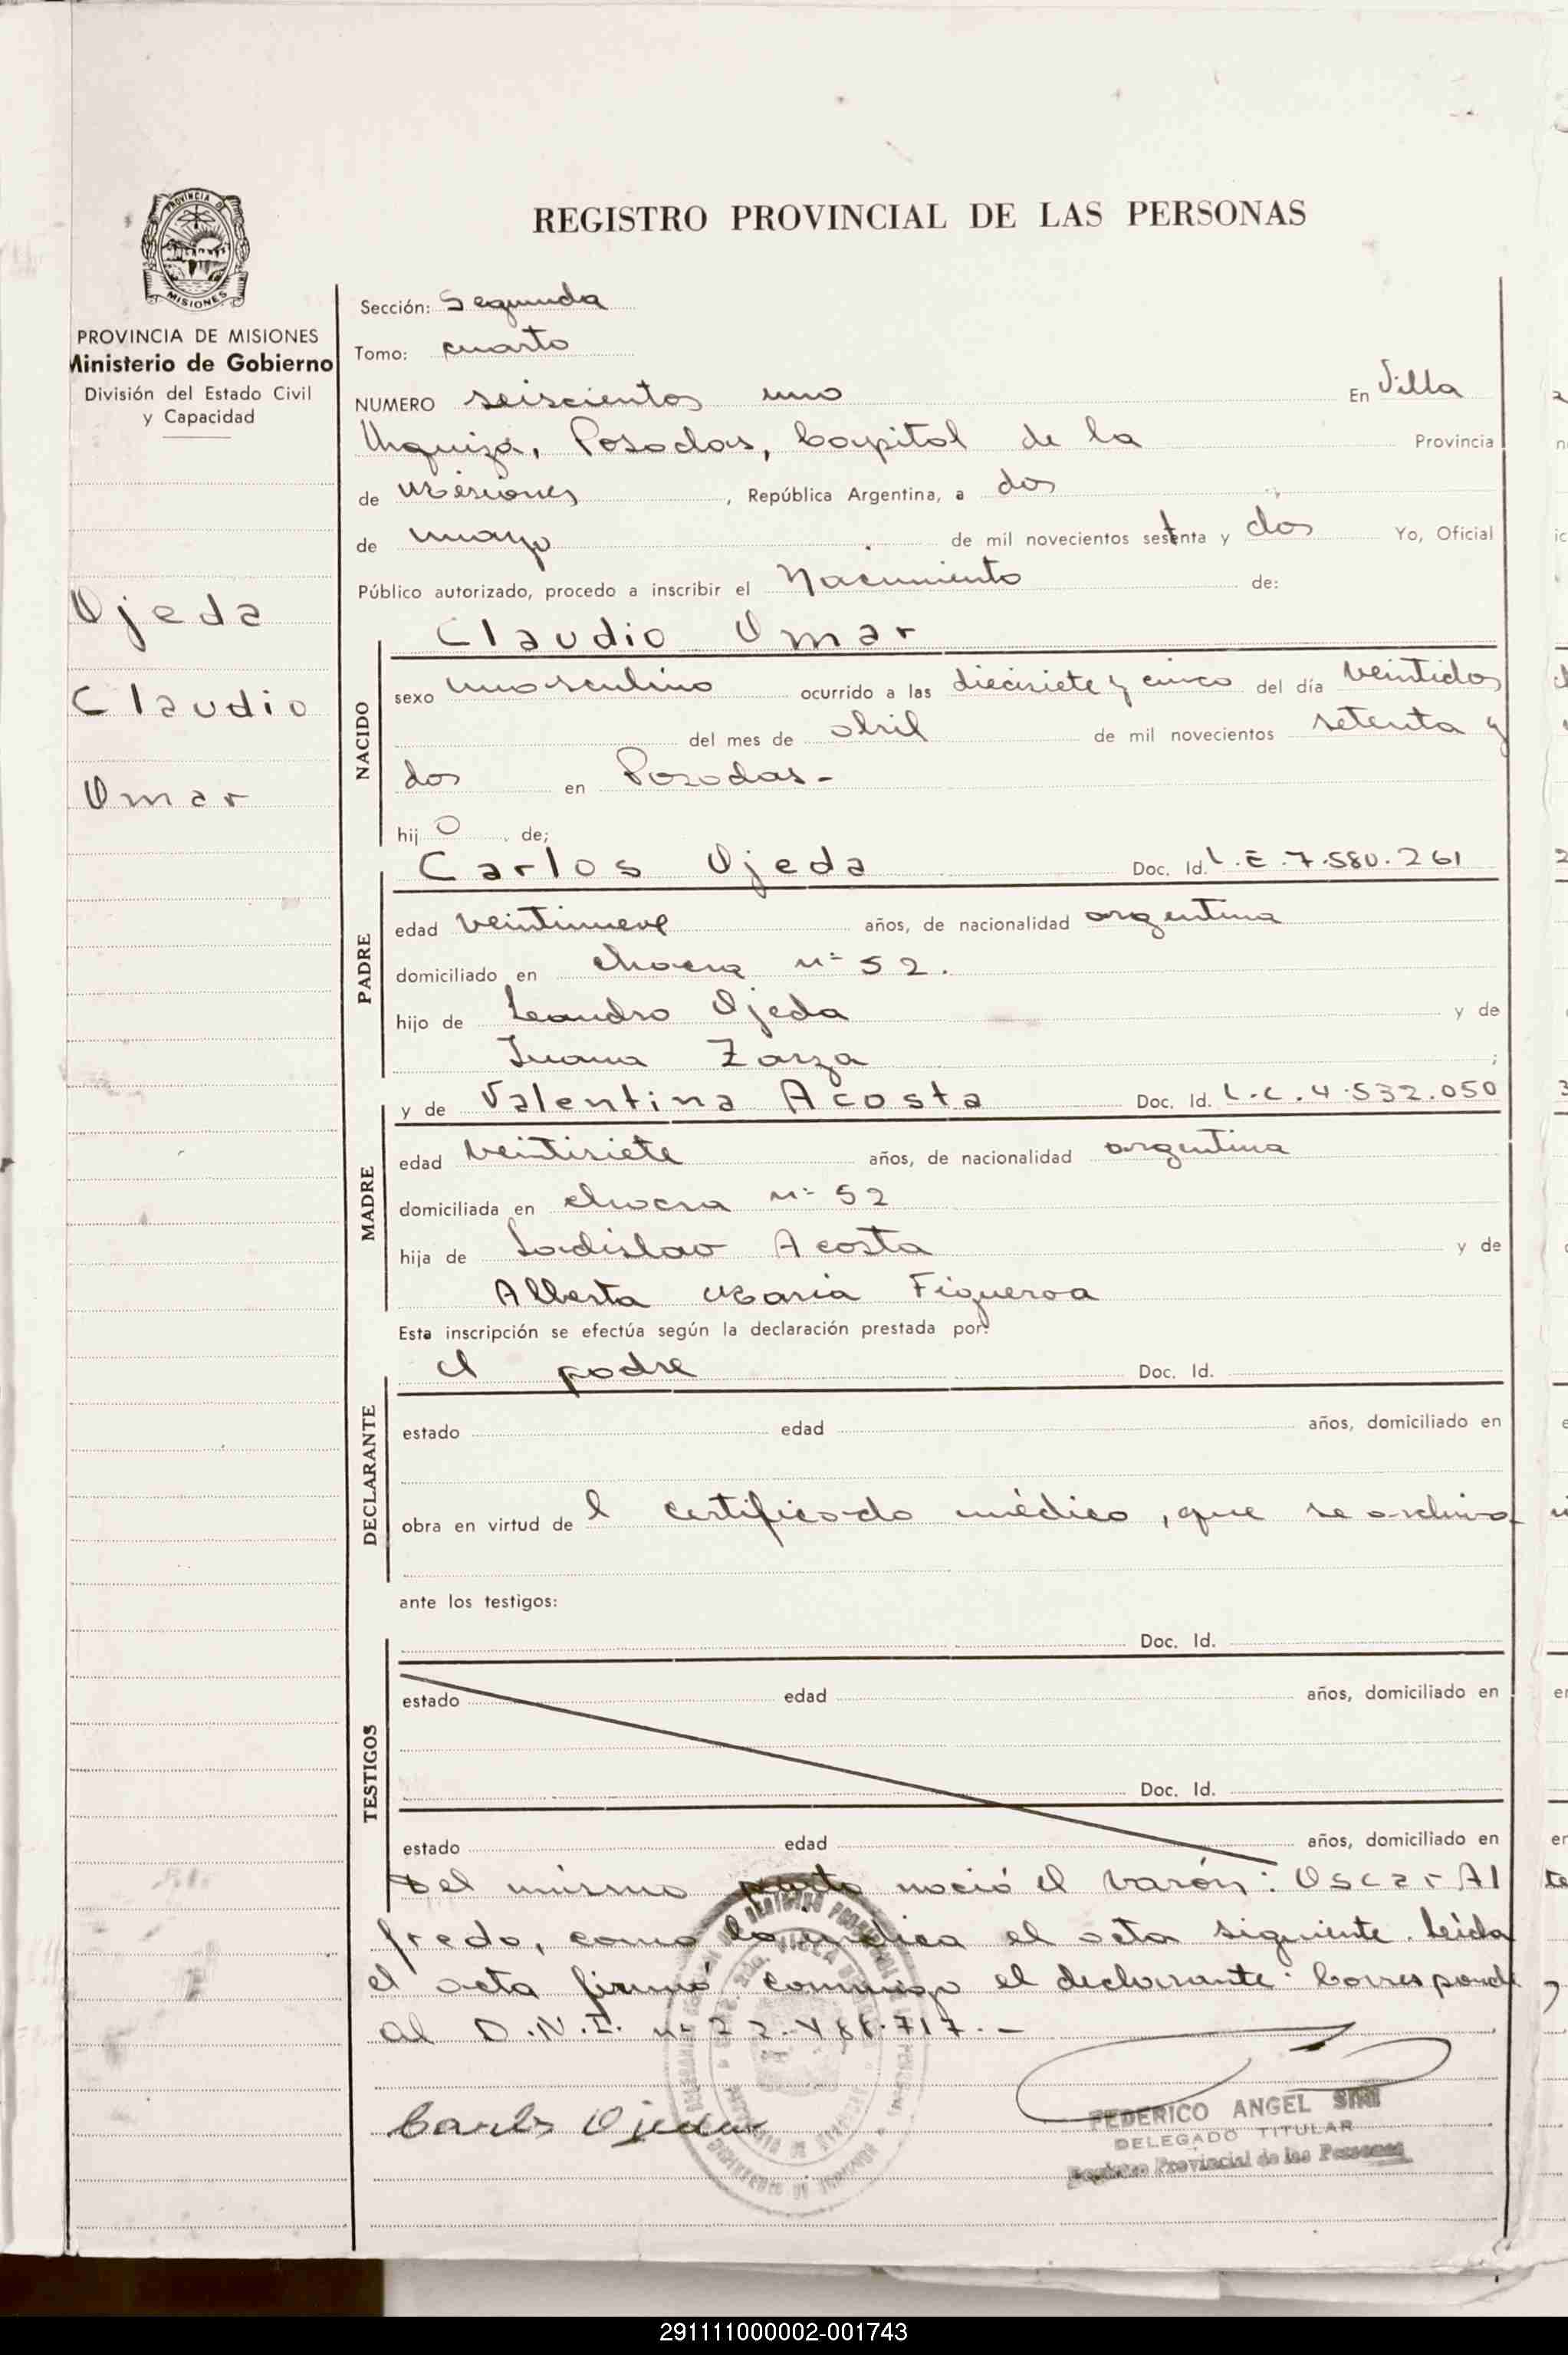 PROVINCIA DE
MISIONES
PROVINCIA DE MISIONES
Ministerio de Gobierno
División del Estado Civil
y Capacidad
Ojeda
Claudio
Omar
REGISTRO PROVINCIAL DE LAS PERSONAS
Sección: Segunda
Tomo: cuarto
NUMERO seiscientos uno En Villa
Urquiza, Posadas, Capital de la Provincia
de Misiones, República Argentina, a dos
de mayo de mil novecientos setenta y dos Yo, Oficial
Público autorizado, procedo a inscribir el Nacimiento de:
Claudio Omar
NACIDO
sexo masculino ocurrido a las diecisiete y cinco del día veintidos
del mes de abril de mil novecientos setenta y
dos en Posadas-
hij o de;
Carlos Ojeda Doc. Id. L.E.7.580.261
PADRE
edad veintinueve años, de nacionalidad argentina
domiciliado en chacra nº 52.
hijo de Leandro Ojeda y de
Juana Zarza ;
y de Valentina Acosta Doc. Id. L.C.4.532.050
MADRE
edad veintisiete años, de nacionalidad argentina
domiciliada en chacra nº 52
hija de Ladislao Acosta y de
Alberta Maria Figueroa
Esta inscripción se efectúa según la declaración prestada por:
el padre Doc. Id.
DECLARANTE
estado edad años, domiciliado en
obra en virtud de l certificado médico, que se archiva
ante los testigos:
Doc. Id.
TESTIGOS
estado edad años, domiciliado en
Doc. Id.
estado edad años, domiciliado en
Del mismo parto nació el varón: Oscar Al
fredo, como lo indica el acta siguiente. Leída
el acta firmó conmigo el declarante: Corresponde
al D.N.I. nº 22.
Carlos Ojeda
FEDERICO ANGEL SIRI
DELEGADO TITULAR
Registro Provincial de las Personas
291111000002-001743